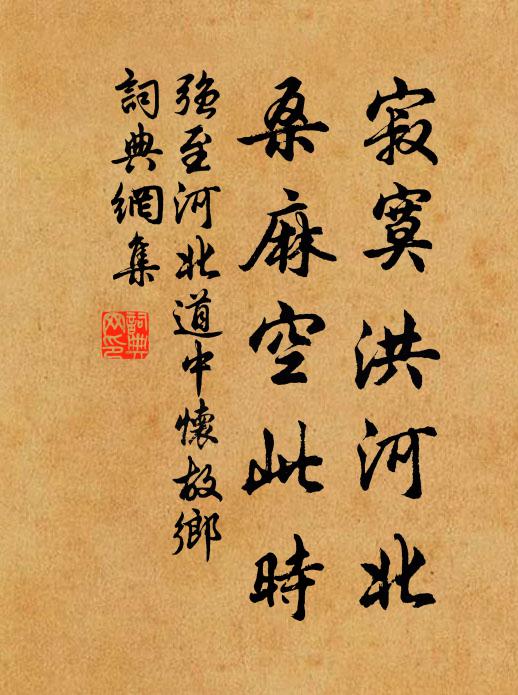 寂寞洪河北
桑麻空此時
強至河北道中懷故鄉
詞典網集
詞典
网印